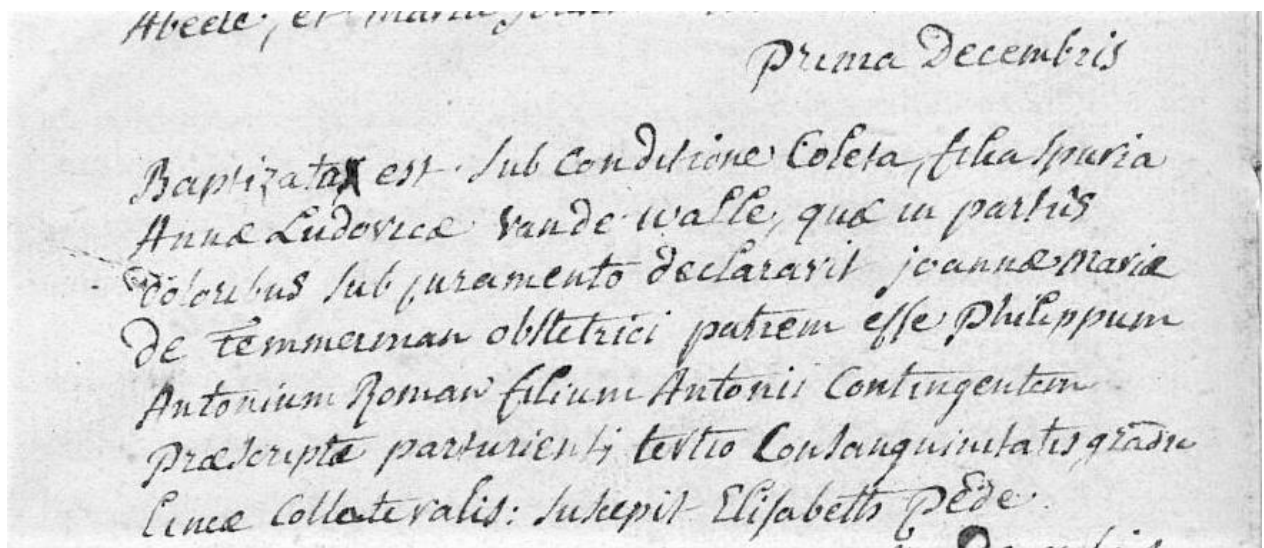 Abeele, et maria
prima Decembris
Baptizata est sub Conditione Coleta, filia spuria
Annæ Ludovicæ vande walle, quæ in partûs
doloribus sub juramento declaravit joannæ mariæ
de temmerman obstetrici patrem esse philippum
Antonium Roman filium Antonii Contingentem
præscriptæ parturienti tertio Consanguinitatis gradu
lineæ Collateralis: suscepit Elisabeth pede